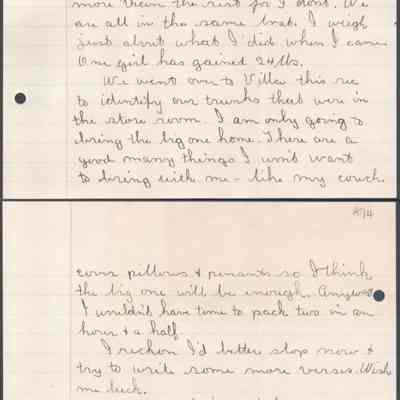 more than the rest for I don't. We
are all in the same boat. I weigh
just about what I did when I came
One girl has gained 24 lbs.
We went over to Villa this
to identify our trunks that were in
the store room. I am only going to
bring the big one home. There are a
good many things I won't want
to bring with me - like my couch.
14
cover pillows & penants so I think
the big one will be enough. Anyway
I wouldn't have time to pack two in an
hour & a half
I reckon I'd better stop now &
try to write some more verses. Wish
me luck.